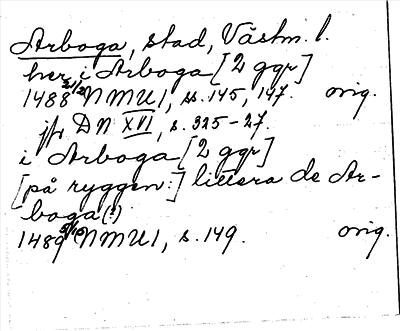 Arboga, stad, Västm. l.
her i Arboga [2 ggr]
1488 21/2 NMU I, s. 145, 147. orig.
jfr DN XVI, s. 325-27.
i Arboga [2 ggr]
[på ryggen:] littera de Ar-
boga (!)
1489 5/10 NMU I, s. 149. orig.